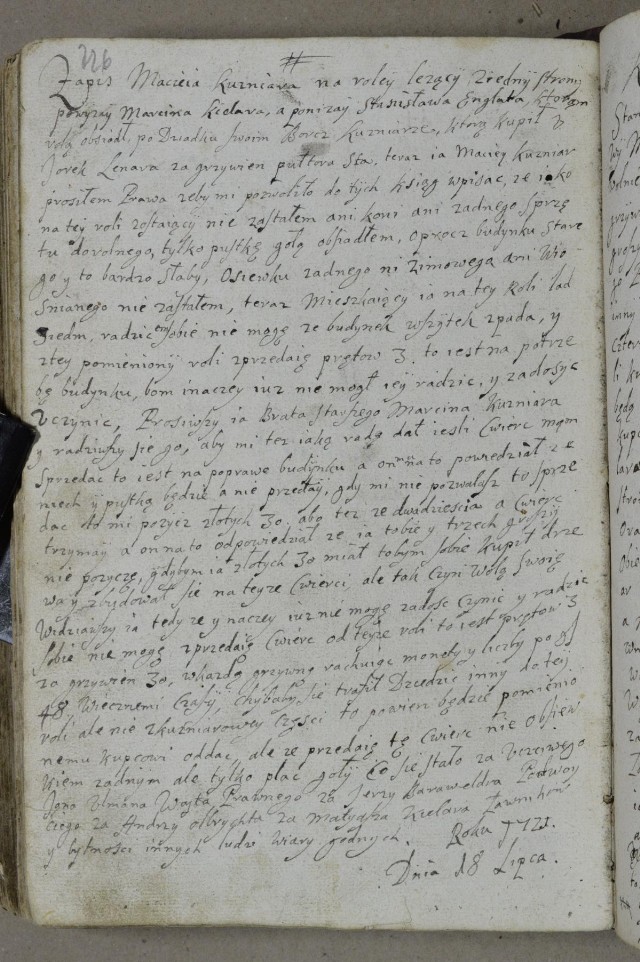 226
#
Zapis Macieia Kuzniara na roley lezący zredny strony
powyzay Marcina Kielara, a ponizay Stanisława Englata, ktorom
rolą obsiadł, po Dziadku swoim Borcz Kuzniarze, ktorą kupił v
Jorek Lenara za grzywien pułtora sta, teraz ia Maciey Kuzniar
prosiłem Prawa zeby mi pozwoliło do tych ksiąg wpisac, ze iako
na tey roli zostaiący nie zastałem ani koni ani zadnego sprzę
tu dorolnego, tylko pustkę gołą obsiadłem, oprocz budynku stare
go y to bardzo słaby, osiewku zadnego ni zimowego ani Wio
snianego nie zastałem, teraz Mieszkaiący ia na tey Roli lad
siedm, radzic sobie nie mogę ze budynek wszytek zpada, y
ztey pomieniony roli zprzedaię prętow 3. to iest na potrze
bę budynku, bom inaczey iuz nie mogł iey radzic, y zadosyc
Vczynic, Prosiwszy ia Brata starszego Marcina Kuzniara
y radziwszy sie go, aby mi tez iaką radę dał iesli Cwierc mam
Sprzedac to iest na poprawę budynku a on mi na to powiedział ze
niech y pustką będzie a nie przeday, gdy mi nie pozwalasz tu sprze
dac to mi pozycz złotych 30. abo tez ze dwadziescia a Cwierc
trzymay a on na to odpowiedział ze ia tobie y trzech groszy
nie pozyczę, gdybym ia złotych 30 miał tobym sobie kupił drze
wa y zbudował sie na teyze Cwierci ale tak czyn Wolą Swoię
Widziawszy ia tedy ze y naczey iuz nie mogę zadosc Czynic y radzic
sobie nie mogę zprzedaię Cwierc od teyze roli to iest prętow 3
za grzywien 30, wkazdą grzywnę rachuiąc monety y liczby po gr
48, Wiecznemi Czasy, chybaby sie trafił Dziedzic inny do tey
roli ale nie zkuzniarowey Częsci to powien będzie pomienio
nemu Kupcowi oddac, ale ze przedaię tę Cwierc nie obsiew
kiem zadnym ale tylko plac goły Co sie stało za Vczciwego
Jono Vlmana Woyta Prawnego za Jerzy Baraweldra Podwoy
ciego za Andrzy olbrychta za Matyasza Kielara Ławnikow
y bytnosci innych ludzi wiary godnych. Roku 1721.
Dnia 18 Lipca.